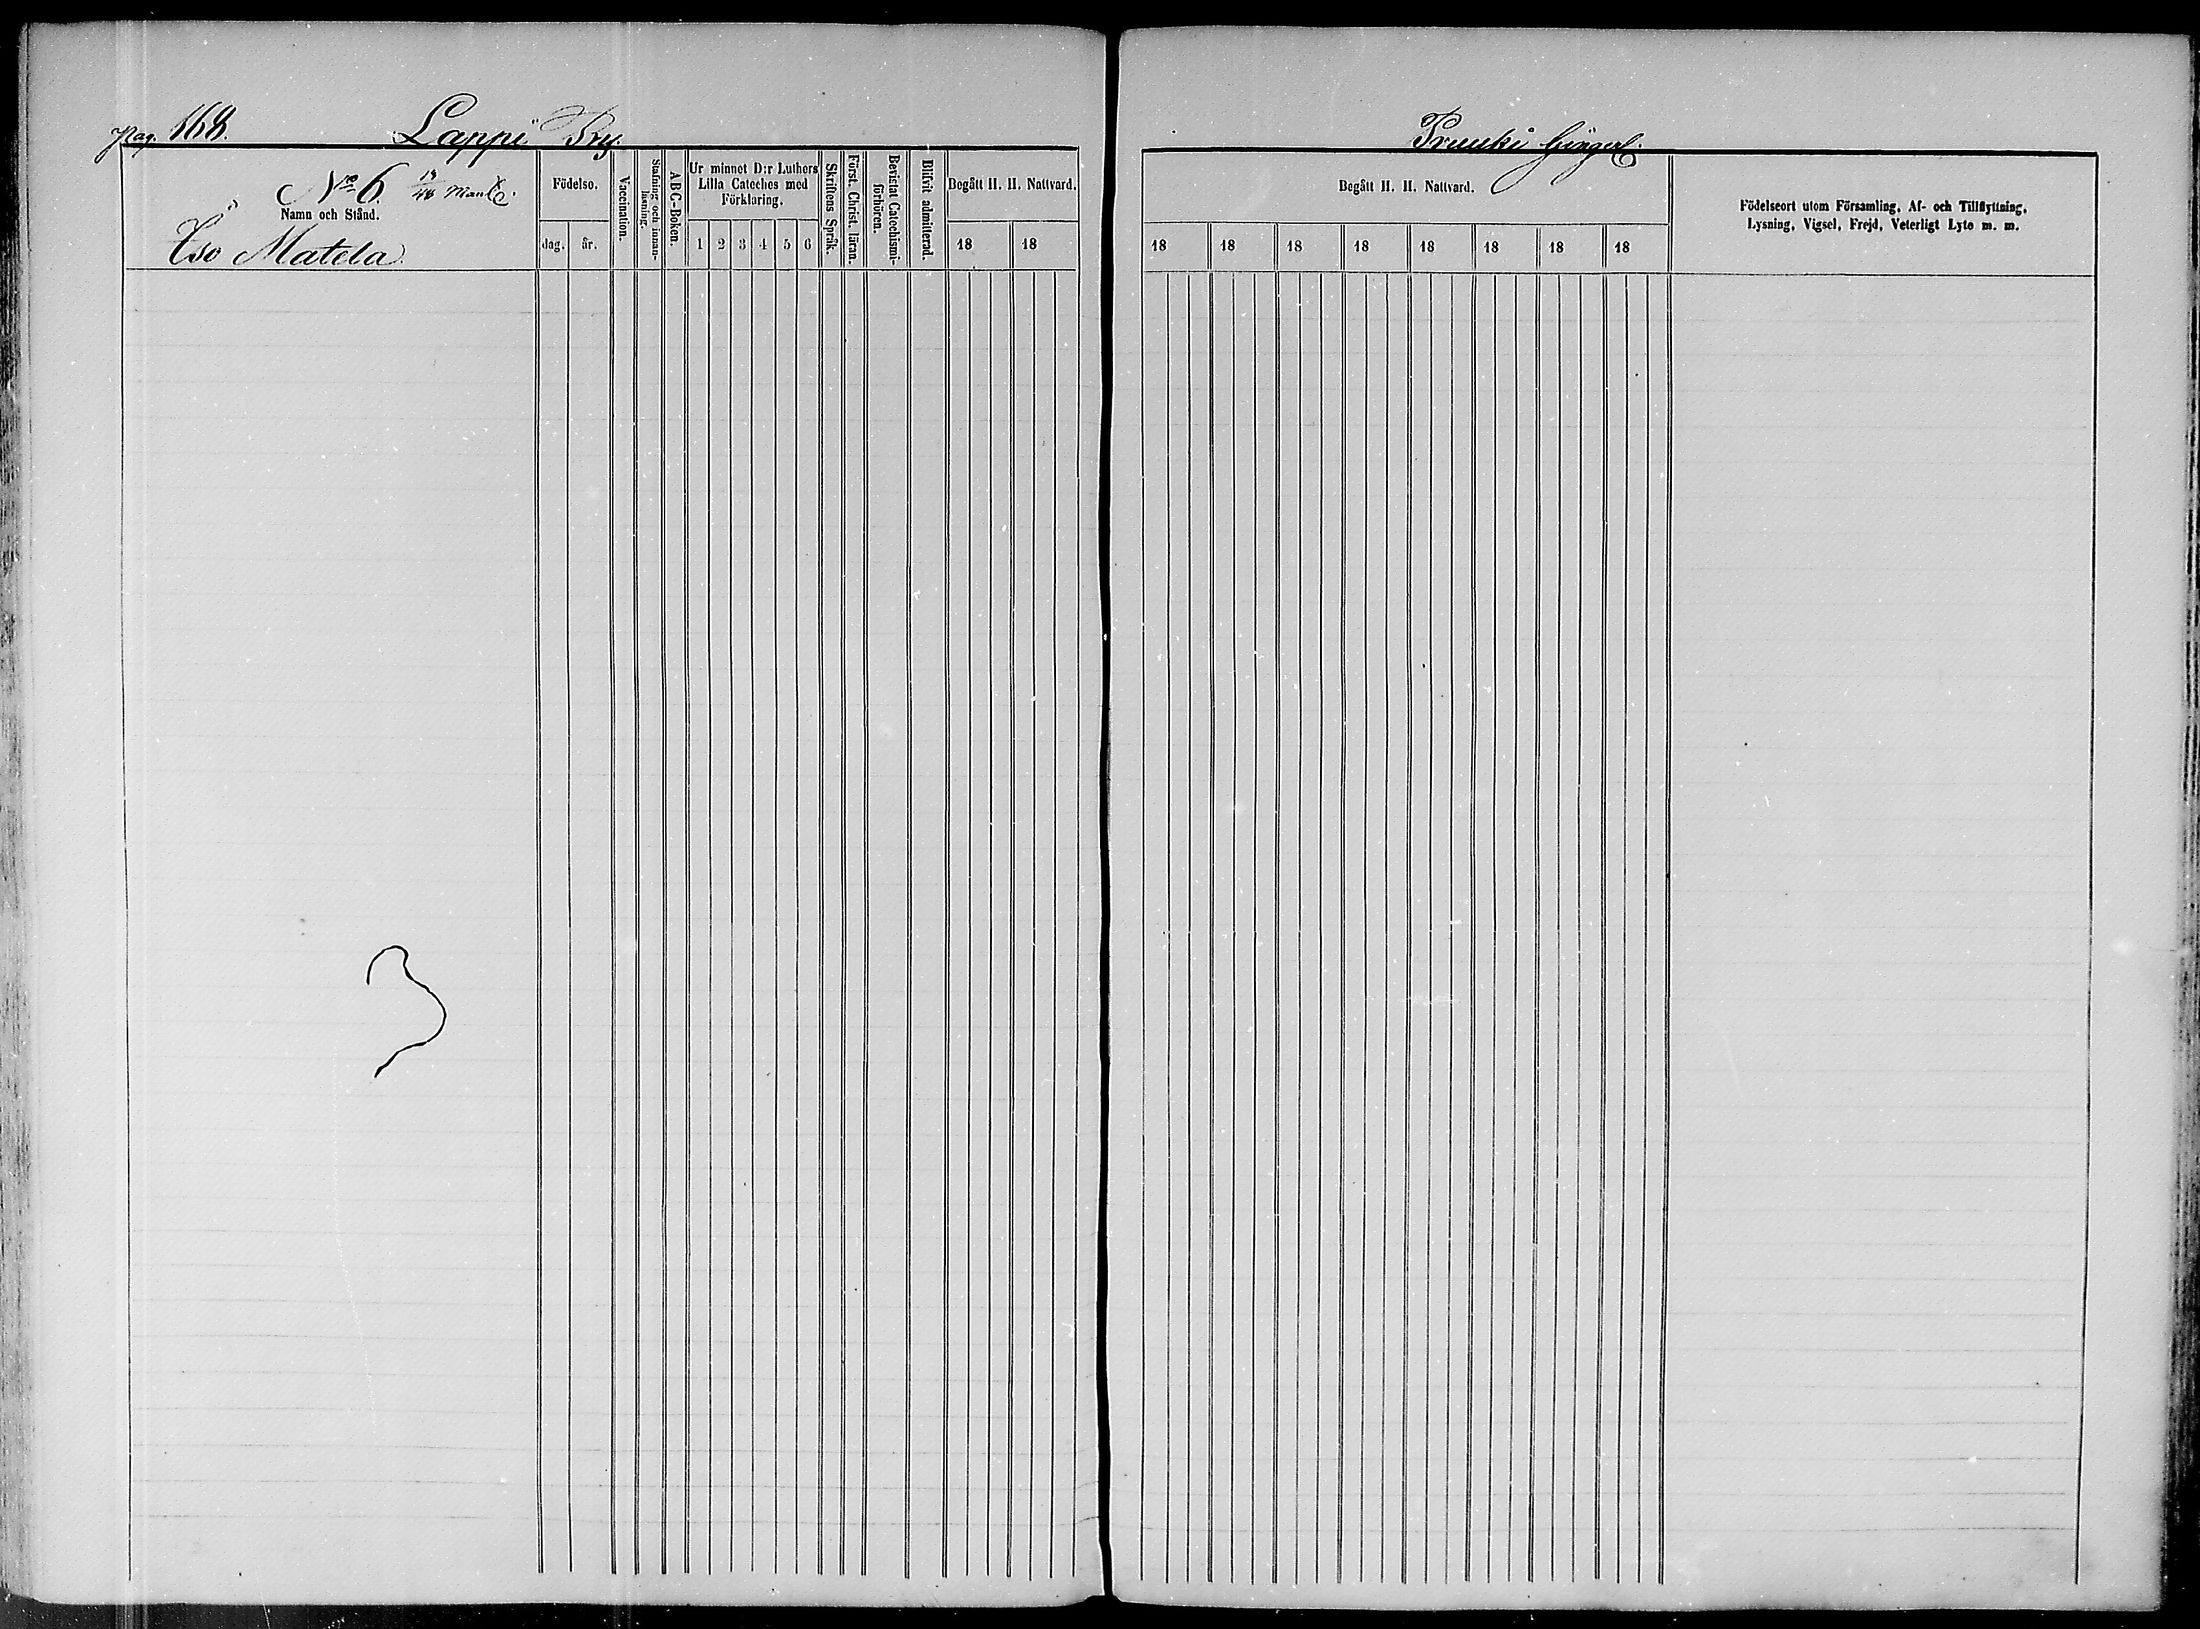 Pag. 168.
Lappi By.
No 6. 19/48 Mantl.
Namn och Stånd.
Iso Matela.
Födelse.
dag. år.
Vaccination.
Stafning och innan-läsning.
ABC-Boken.
Ur minnet D:r Luthers
Lilla Cateches med
Förklaring.
1 2 3 4 5 6
Skriftens Språk.
Först. Christ. läran.
Bevistat Catechismi-förhören.
Blifvit admitterad.
Begått H. H. Nattvard.
18 18
3
Pruuki
Begått H. H. Nattvard.
18 18 18 18 18 18 18 18
Födelseort utom Församling, Af- och Tillflyttning,
Lysning, Vigsel, Frejd, Veterligt Lyte m. m.